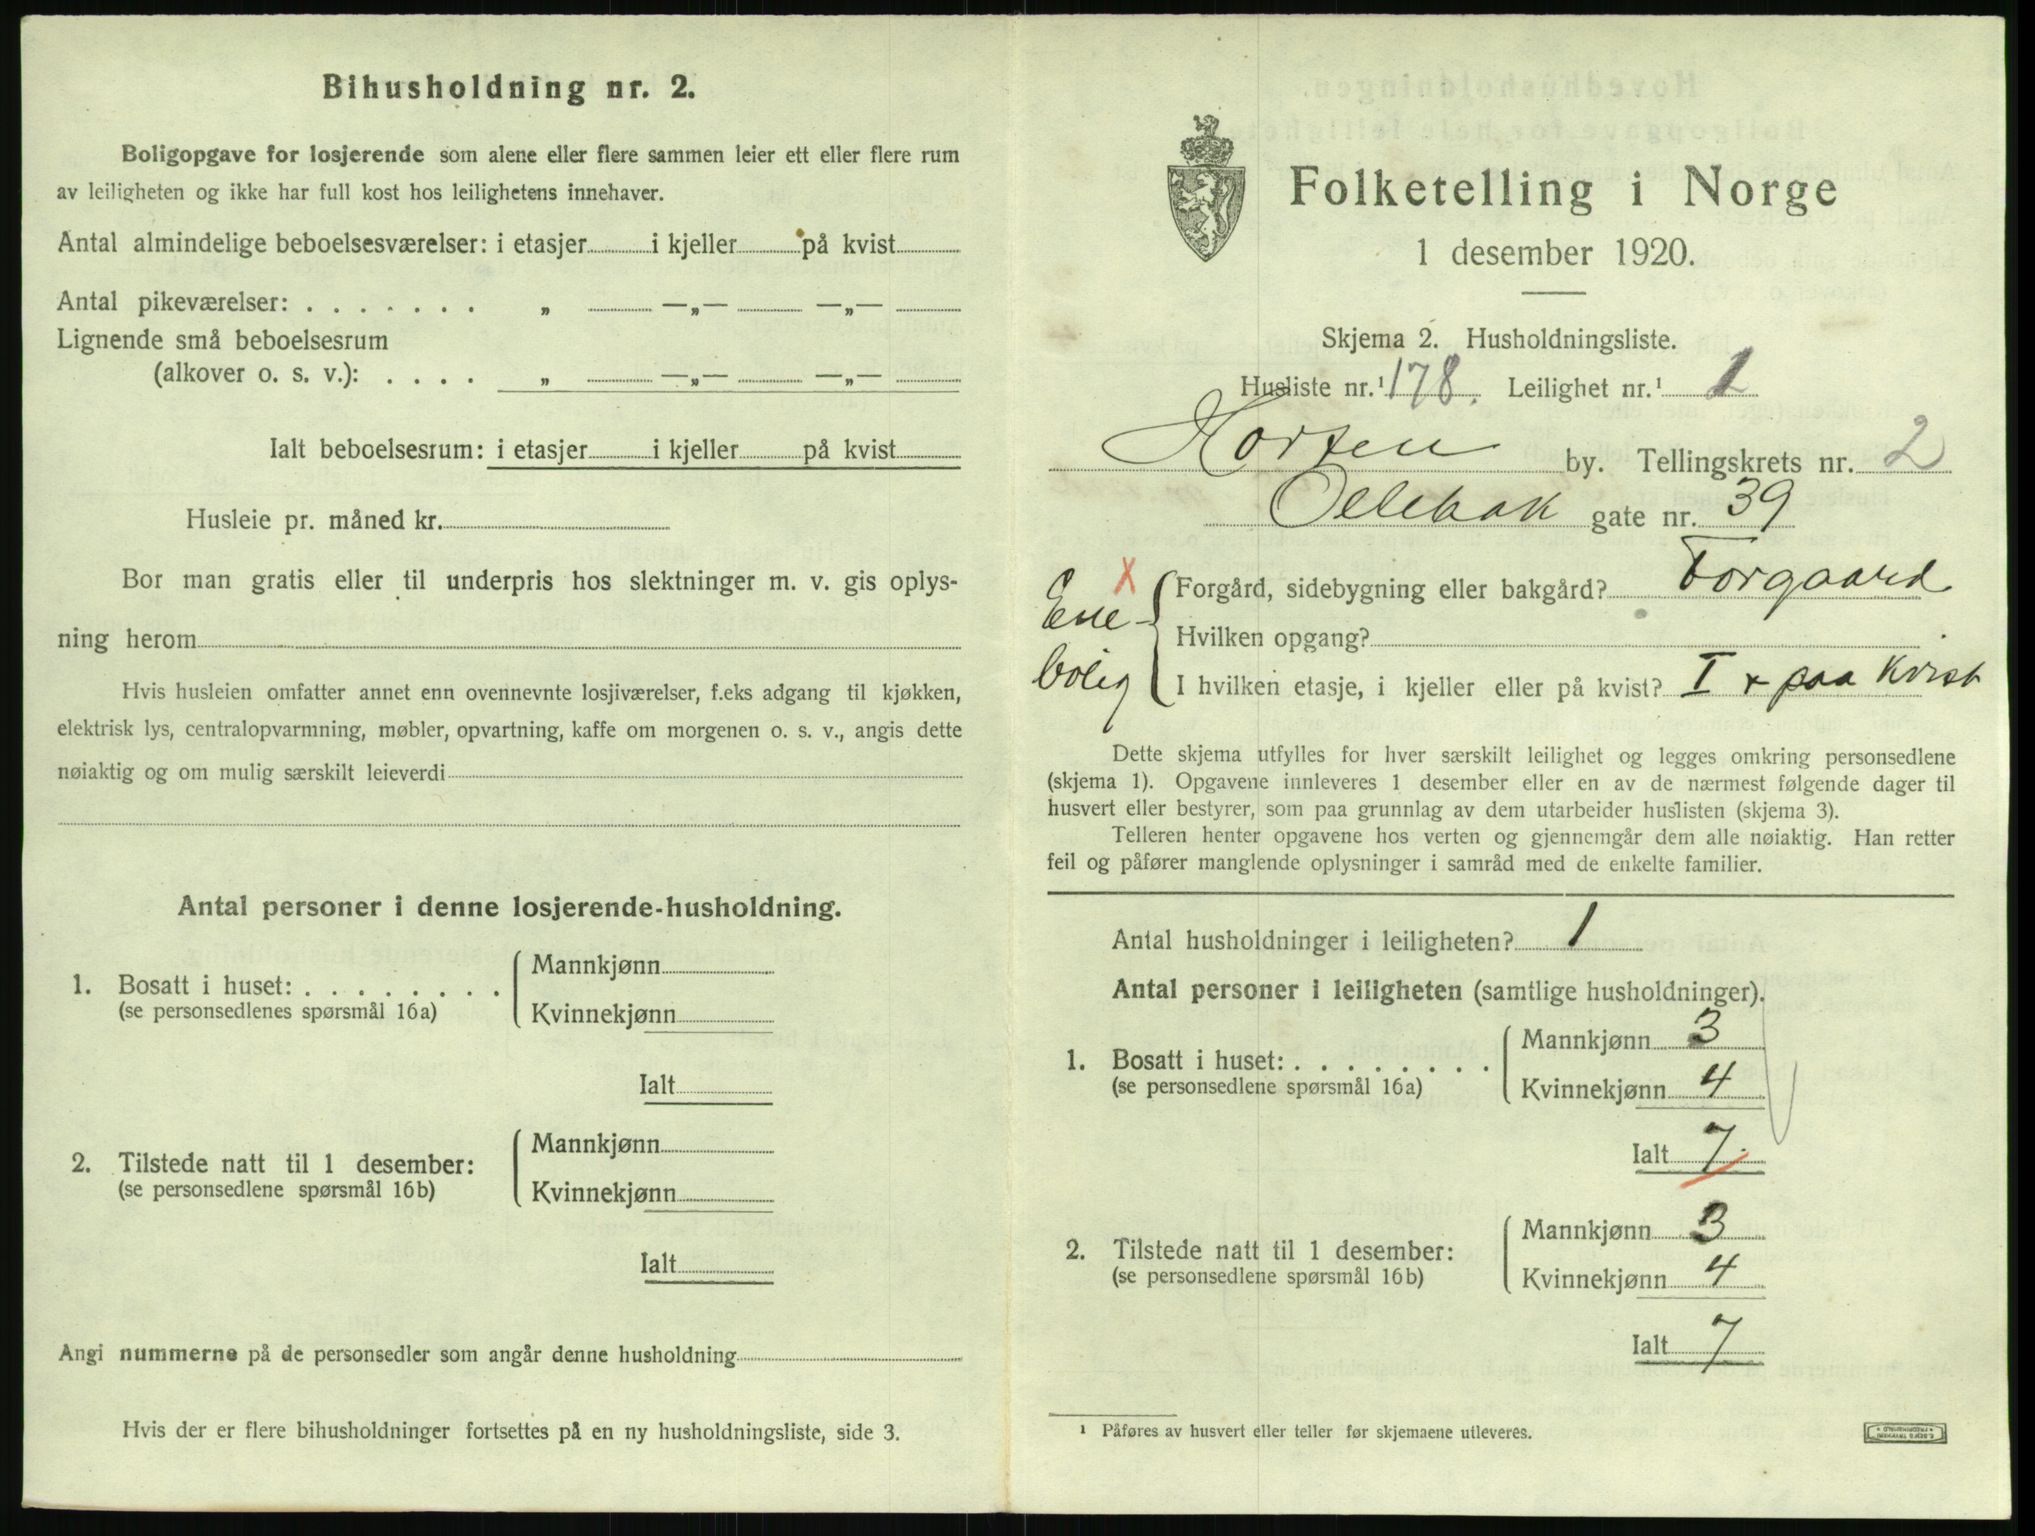 Bihusholdning nr. 2.
Boligopgave for losjerende som alene eller flere sammen leier ett eller flere rum
av leiligheten og ikke har full kost hos leilighetens innehaver.
Antal almindelige beboelsesværelser: i etasjer i kjeller på kvist
Antal pikeværelser: . . . . . . . „ —„— —„—
Lignende små beboelsesrum
(alkover o. s. v.): . . . . „ —„— —„—
Ialt beboelsesrum: i etasjer i kjeller på kvist
Husleie pr. måned kr.
Bor man gratis eller til underpris hos slektninger m. v. gis oplys-
ning herom
Hvis husleien omfatter annet enn ovennevnte losjiværelser, f.eks adgang til kjøkken,
elektrisk lys, centralopvarmning, møbler, opvartning, kaffe om morgenen o. s. v., angis dette
nøiaktig og om mulig særskilt leieverdi
Antal personer i denne losjerende-husholdning.
1. Bosatt i huset: . . . . . . . . Mannkjønn
(se personsedlenes spørsmål 16a) Kvinnekjønn
Ialt
2. Tilstede natt til 1 desember: Mannkjønn
(se personsedlene spørsmål 16b) Kvinnekjønn
Ialt
Angi nummerne på de personsedler som angår denne husholdning
Hvis der er flere bihusholdninger fortsettes på en ny husholdningsliste, side 3.
Folketelling i Norge
1 desember 1920.
Skjema 2. Husholdningsliste.
Husliste nr.¹ 178. Leilighet nr.¹ 1
Horten by. Tellingskrets nr. 2
gate nr. 39
Ene- X Forgård, sidebygning eller bakgård? Forgaard
Hvilken opgang?
bolig I hvilken etasje, i kjeller eller på kvist? I + paa Kvist
Dette skjema utfylles for hver særskilt leilighet og legges omkring personsedlene
(skjema 1). Opgavene innleveres 1 desember eller en av de nærmest følgende dager til
husvert eller bestyrer, som paa grunnlag av dem utarbeider huslisten (skjema 3).
Telleren henter opgavene hos verten og gjennemgår dem alle nøiaktig. Han retter
feil og påfører manglende oplysninger i samråd med de enkelte familier.
Antal husholdninger i leiligheten? 1
Antal personer i leiligheten (samtlige husholdninger).
1. Bosatt i huset: . . . . . . . . Mannkjønn 3
(se personsedlene spørsmål 16a) Kvinnekjønn 4
Ialt 7.
2. Tilstede natt til 1 desember: Mannkjønn 3
(se personsedlene spørsmål 16b) Kvinnekjønn 4
Ialt 7
¹ Påføres av husvert eller teller før skjemaene utleveres.